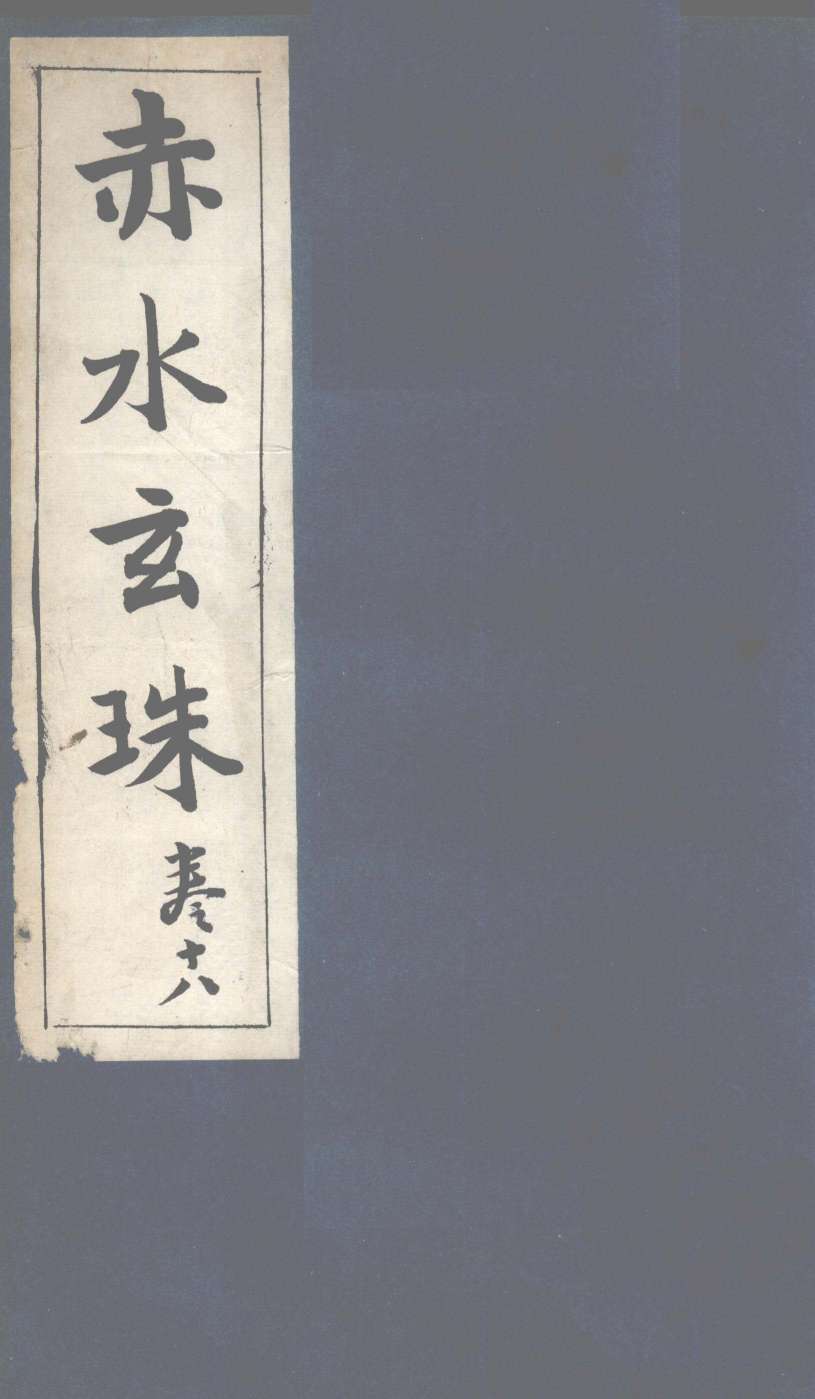 赤水玄珠
卷之十八